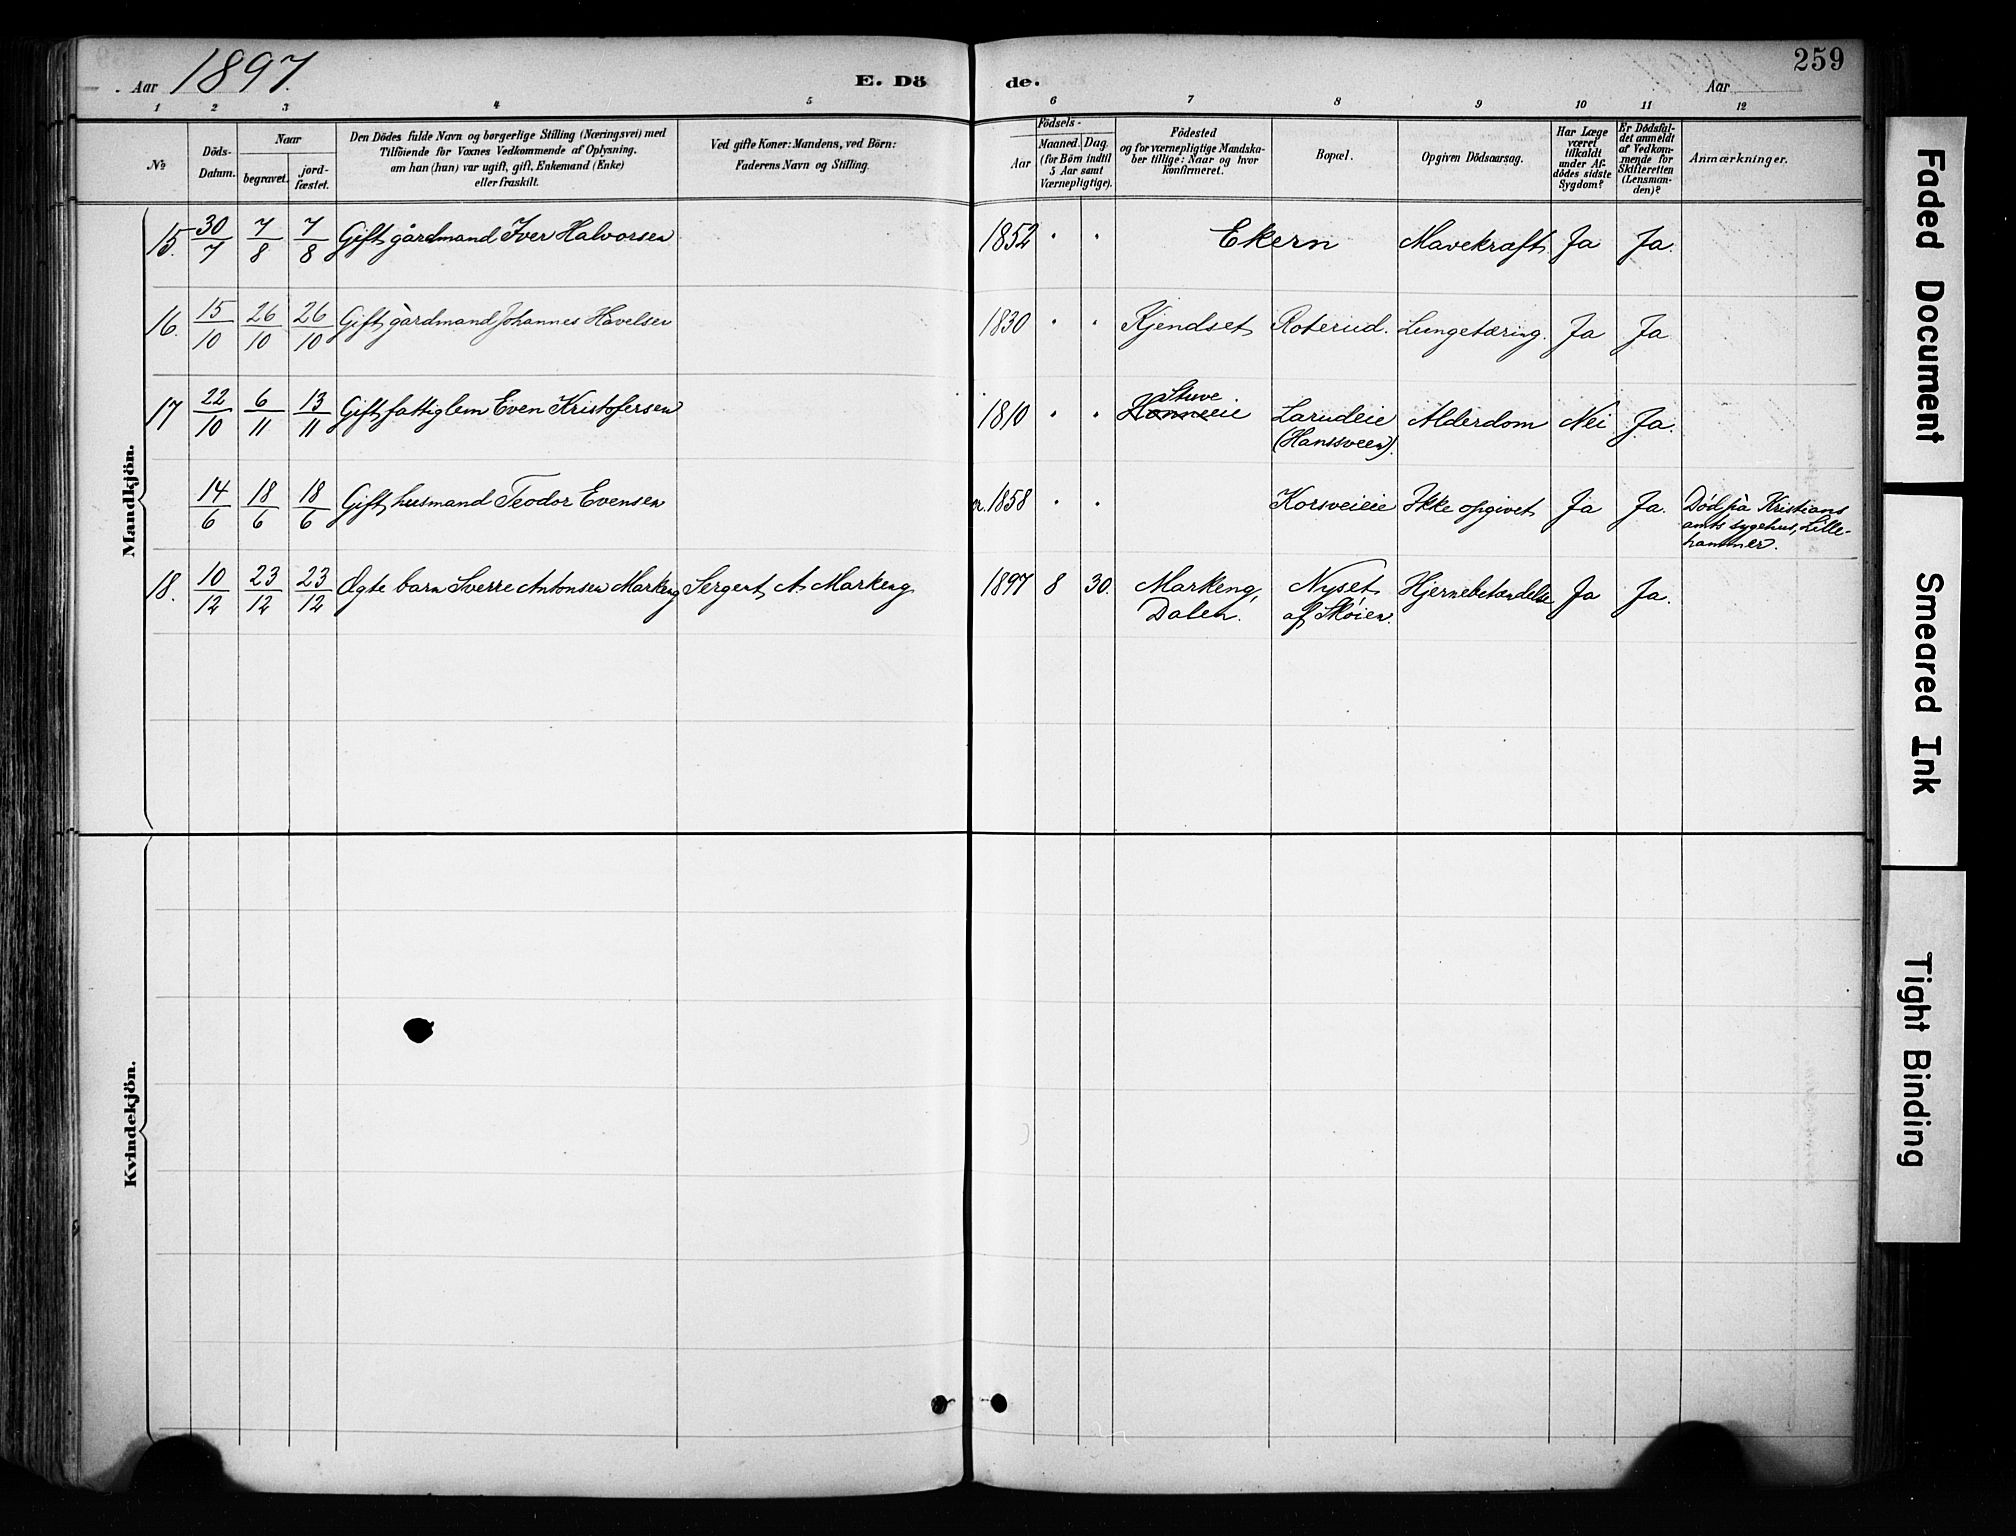 Aar 1897. E. Dö de. Aar 259
1 2 3 4 5 6 7 8 9 10 11 12
№
Döds-Datum.
Naar
begravet.
jord-fæstet.
Den Dödes fulde Navn og borgerlige Stilling (Næringsvei) med
Tilföiende for Voxnes Vedkommende af Oplysning,
om han (hun) var ugift, gift, Enkemand (Enke)
eller fraskilt.
Ved gifte Koner: Mandens, ved Börn:
Faderens Navn og Stilling.
Födsels-
Aar
Maaned. Dag.
(for Börn indtil
5 Aar samt
Værnepligtige).
Födested
og for værnepligtige Mandska-
ber tillige: Naar og hvor
konfirmeret.
Bopæl.
Opgiven Dödsaarsag.
Har Læge
været
tilkaldt
under Af-
dödes sidste
Sygdom?
Er Dödsfal-
det anmeldt
af Vedkom-
mende for
Skifteretten
(Lensman-
den)?
Anmærkninger.
Mandkjön.
15. 30/7 7/8 7/8 Gift gårdmand Iver Halvorsen 1852 " " Ekern Mavekræft. Ja Ja.
16. 15/10 26/10 26/10 Gift gårdmand Johannes Havelsen 1830 " " Kjendset Roterud. Lungetæring. Ja Ja
17 22/10 6/11 13/11 Gift fattiglem Even Kristofersen 1810 " " Stuve eie Larudeie Alderdom Nei Ja.
(Hanssveen).
14/6 18/6 18/6 Gift husmand Teodor Evensen 1858 " " Korsveieie Ikke opgivet Ja Ja. Død på Kristians
amts sygehus, Lille-
hammer.
18. 10/12 23/12 23/12 Ægte barn Sverre Antonsen Markeng Sergent A Markeng 1897 8 30. Markeng, Nyset Hjernebetændelse Ja Ja.
Dalen. af Skøien.
Kvindekjön.
Faded Document
Smeared Ink
Tight Binding